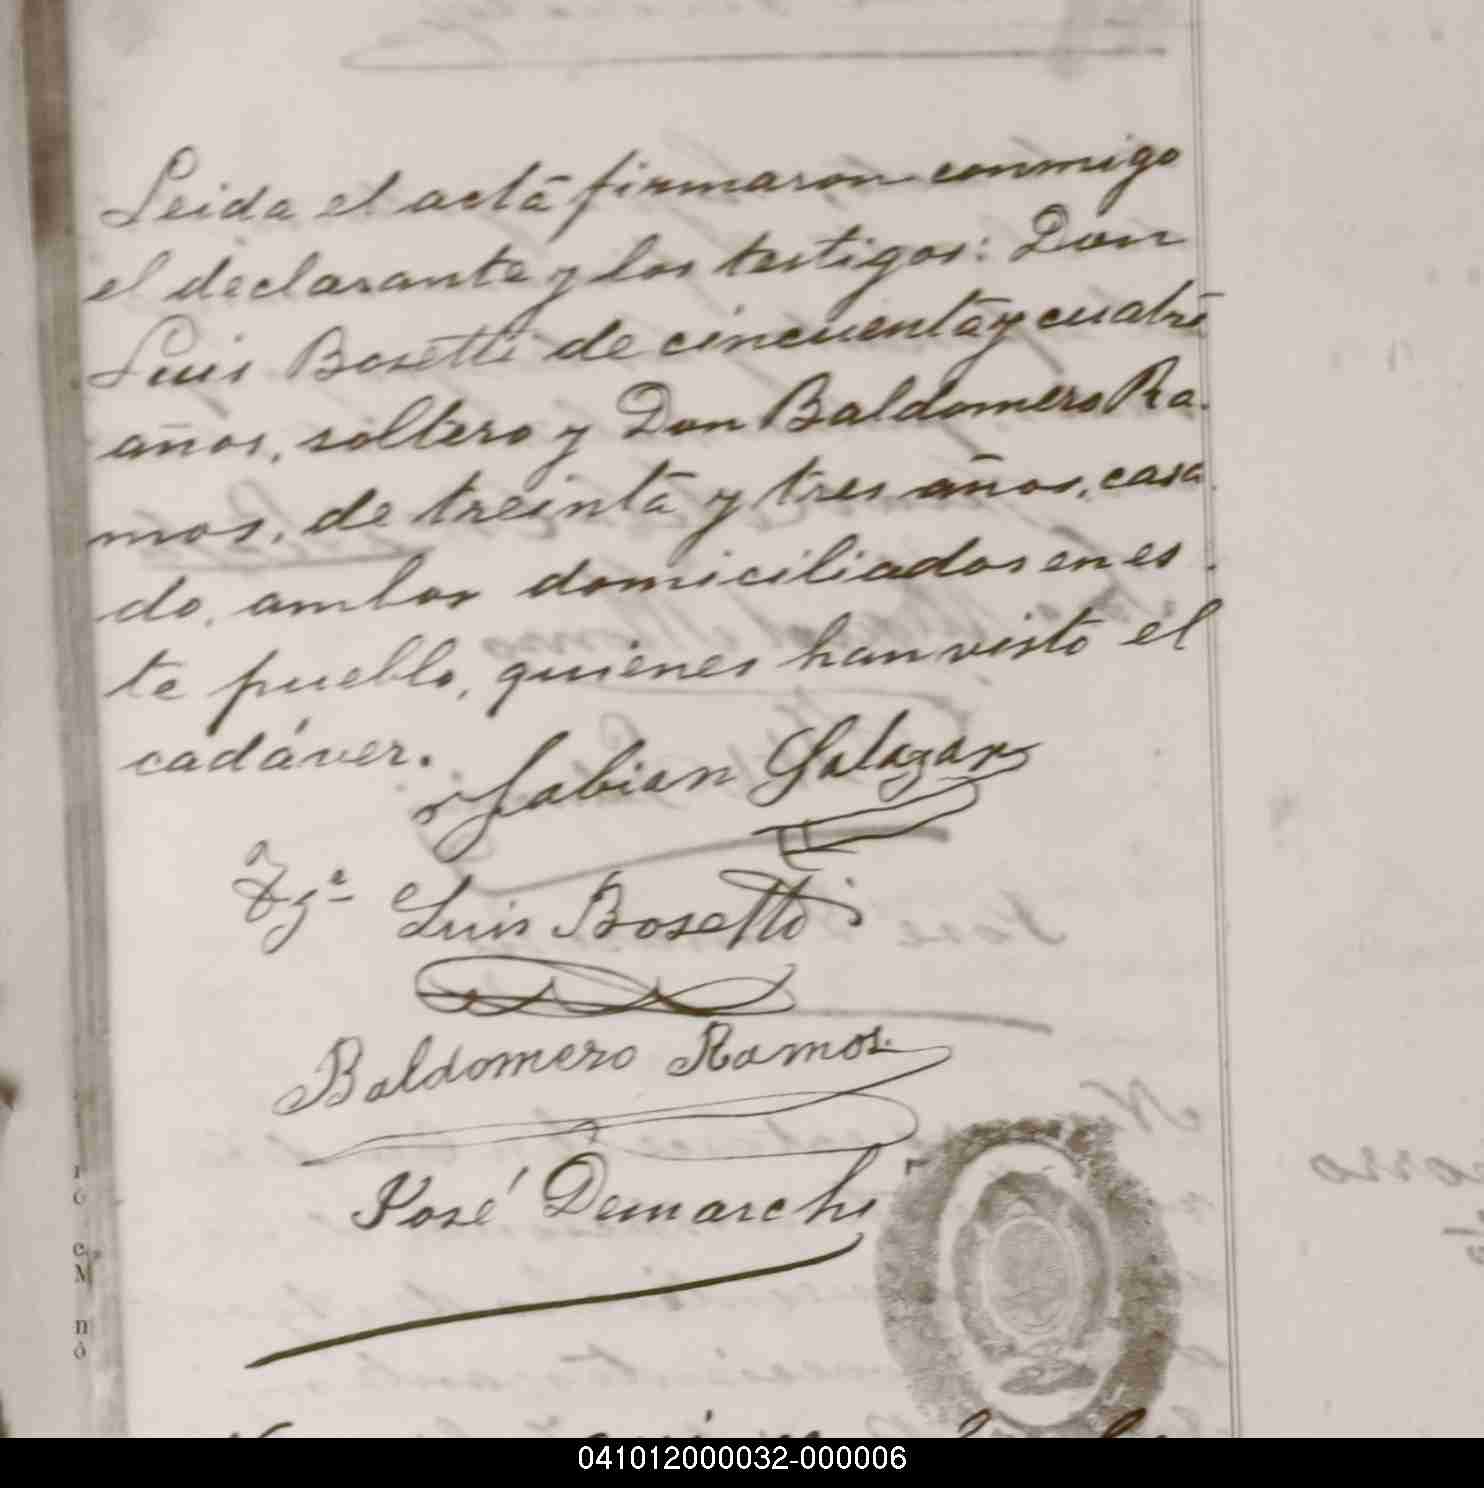 Leida el acta firmaron conmigo
el declarante y los testigos: Don
Luis Bosetti de cincuenta y cuatro
años, soltero y Don Baldomero Ra-
mos, de treinta y tres años, casa-
do, ambos domiciliados en es-
te pueblo, quienes han visto el
cadáver.
Fabian Salazar
Tgo Luis Bosetti
Baldomero Ramos.
José Demarchi
041012000032-000006